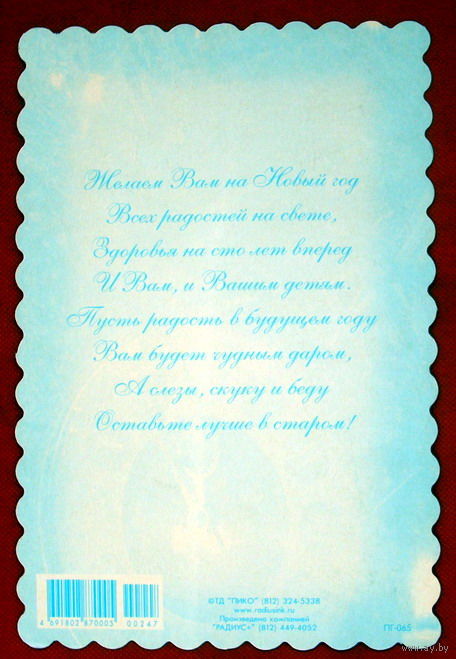 Желаем Вам на Новый год
Всех радостей на свете,
Здоровья на сто лет вперед
И Вам, и Вашим детям.
Пусть радость в будущем году
Вам будет чудным даром,
А слезы, скуку и беду
Оставьте лучше в старом!
©ТД "ПИКО" (812) 324-5338
www.radiusink.ru
Произведено компанией
"РАДИУС+" (812) 449-4052
4 691802 870005
00247
ПГ-065
www.ay.by